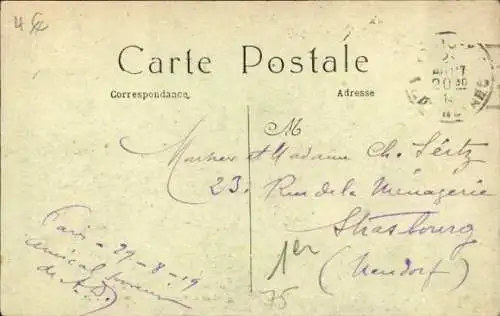 Carte Postale
Correspondance
Adresse
M
Monsieur et Madame Ch. Sertz
23. Rue de la Ménagerie
Strasbourg
(Neudorf)
Paris - 29-8-19
amical
de A.D.
1er
75
20 30